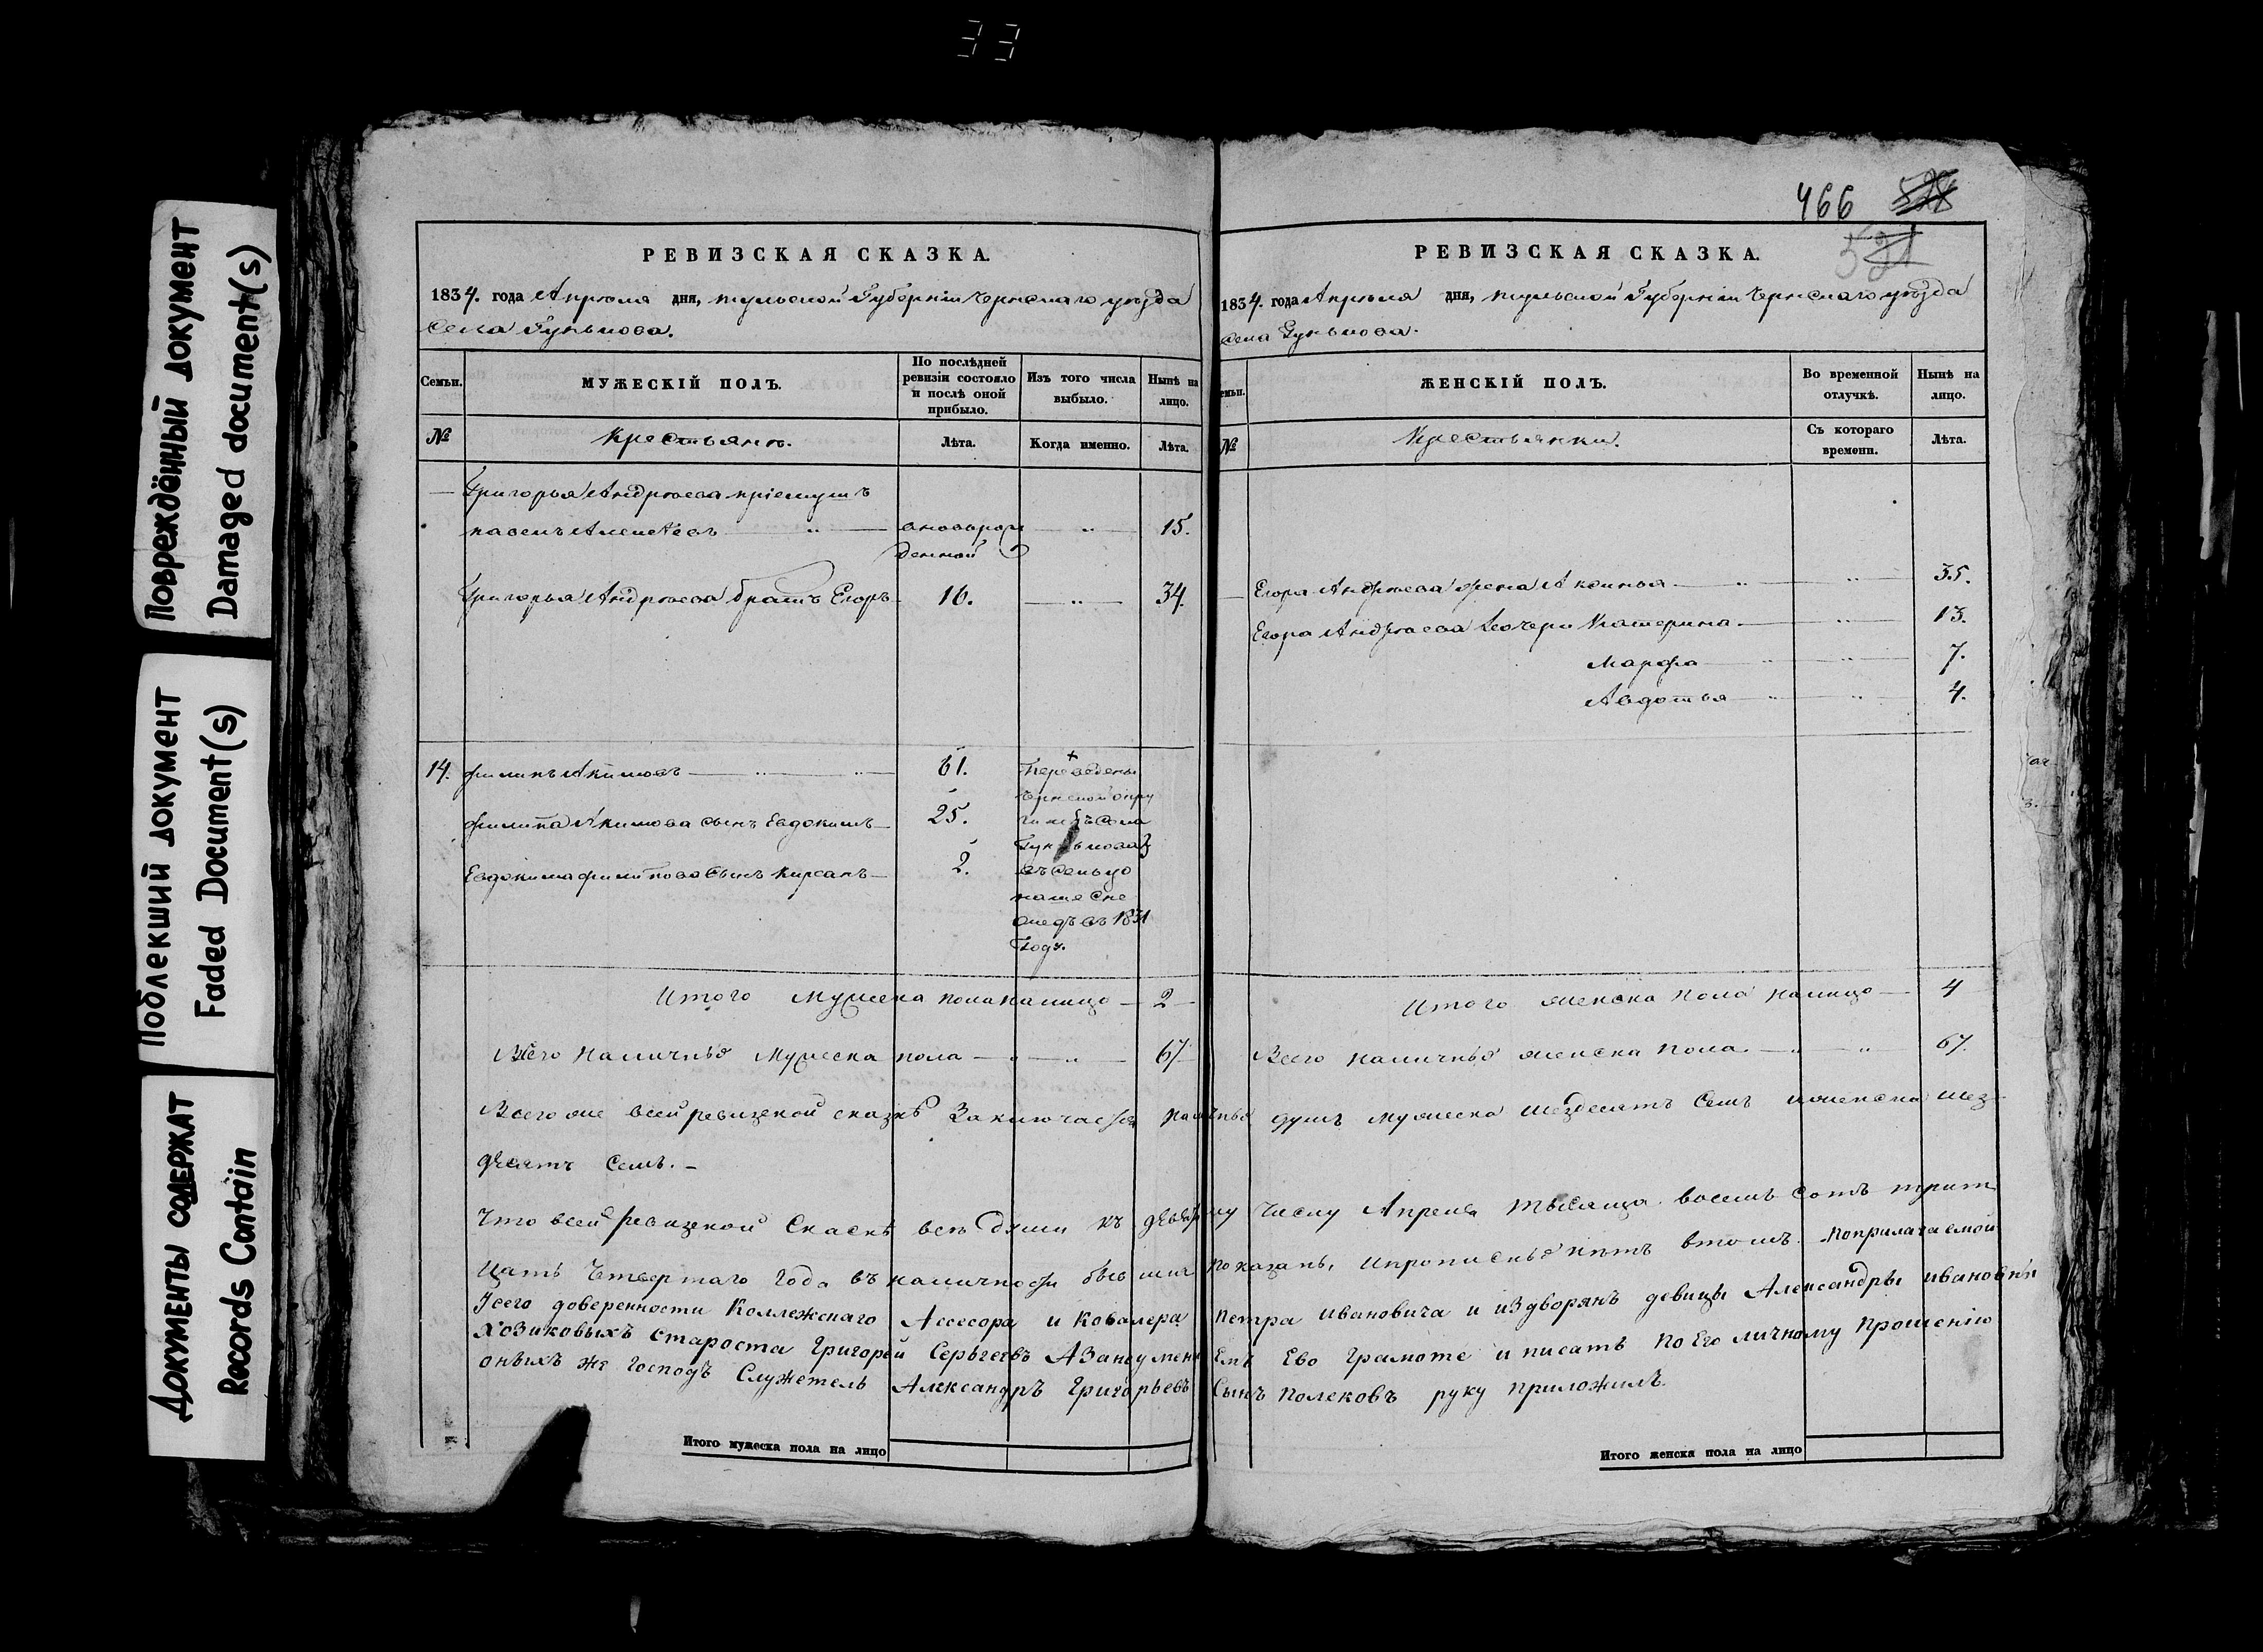 33
Повреждённый документ
Damaged document(s)
Поблекший документ
Faded Document(s)
Документы содержат
Records Contain
466
521
РЕВИЗСКАЯ СКАЗКА.
1834. года Апрѣля дня, тульской Губерніи Чернскаго уѣзда
села Гунькова.
Семьи.
МУЖЕСКІЙ ПОЛЪ.
По послѣдней ревизіи состояло и послѣ оной прибыло.
Изъ того числа выбыло.
Нынѣ на лицо.
№
Крестьянъ.
Лѣта.
Когда именно.
Лѣта.
Григорья Андрѣева пріемушъ
павелъ Алексѣевъ 15.
Григорья Андрѣева братъ Егоръ 16. 34.
14. филипъ Акимовъ 61. Переведены
Чернской окру
филипа Акимова сынъ Евдокимъ 25.
Гунькова
Евдокима филипова сынъ Кирсанъ 2.
въ 1831
Году.
Итого Мужеска пола налицо 2
Всего Наличныхъ Мужеска пола 67
РЕВИЗСКАЯ СКАЗКА.
1834. года Апрѣля дня, тульской Губерніи Чернскаго уѣзда
села Гунькова.
ЖЕНСКІЙ ПОЛЪ.
Во временной отлучкѣ.
Нынѣ на лицо.
№
Крестьянки.
Съ котораго времени.
Лѣта.
Егора Андрѣева жена Аксинья 35.
Егора Андрѣева дочери Катерина 13.
Марфа 7.
Авдотья 4.
Итого женска пола налицо 4
Всего наличныхъ женска пола. 67.
Всего же всей ревизской сказкѣ Заключается наличныхъ душъ мужеска шездесятъ семъ иженска шез-
десятъ семъ.
Что всей ревизской Скаскѣ всѣ души къ числу Апреля тысяща восемъ сотъ трит
цать Четвертаго Года въ наличности показаны, ипрописныхъ нѣтъ втомъ. поприлагаемой
Усего доверенности Коллежскаго Асесора и Ковалера Петра ивановича и издворянъ девицы Александры ивановны
Хозиковыхъ староста Григорей Серьгеевъ Азанеуменіемъ Ево Грамоте и писать по Его личному Прошенію
оныхъ же Господъ Служетель Александръ Григорьевъ Сынъ Полековъ руку приложилъ.
Итого мужеска пола на лицо
Итого женска пола на лицо